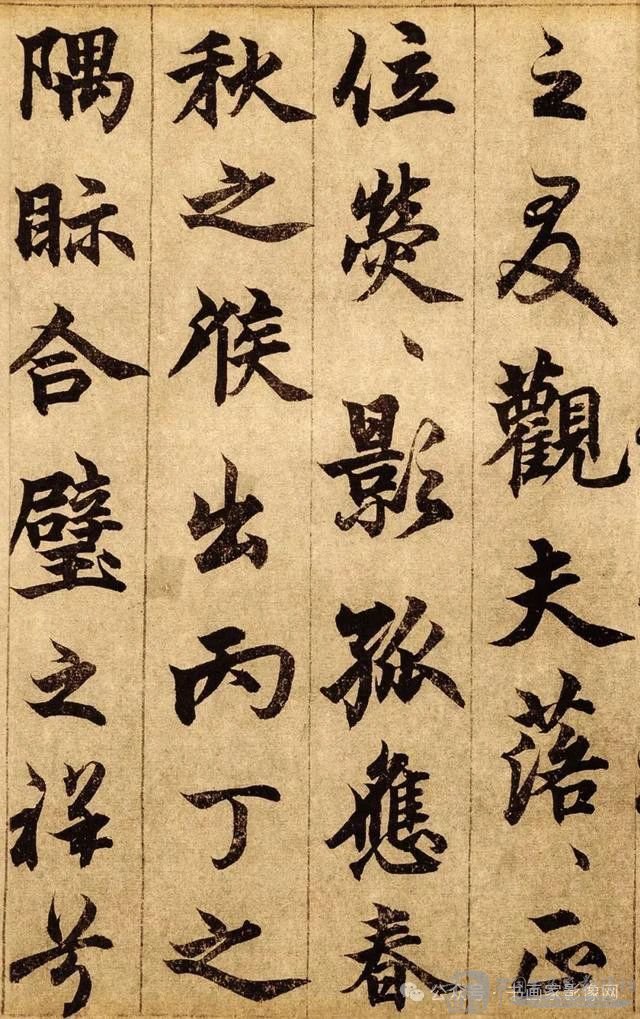 之觀夫落、正
位熒、影孤應春
秋之候出丙丁之
隅眎合璧之祥
公众号 书画家影像网